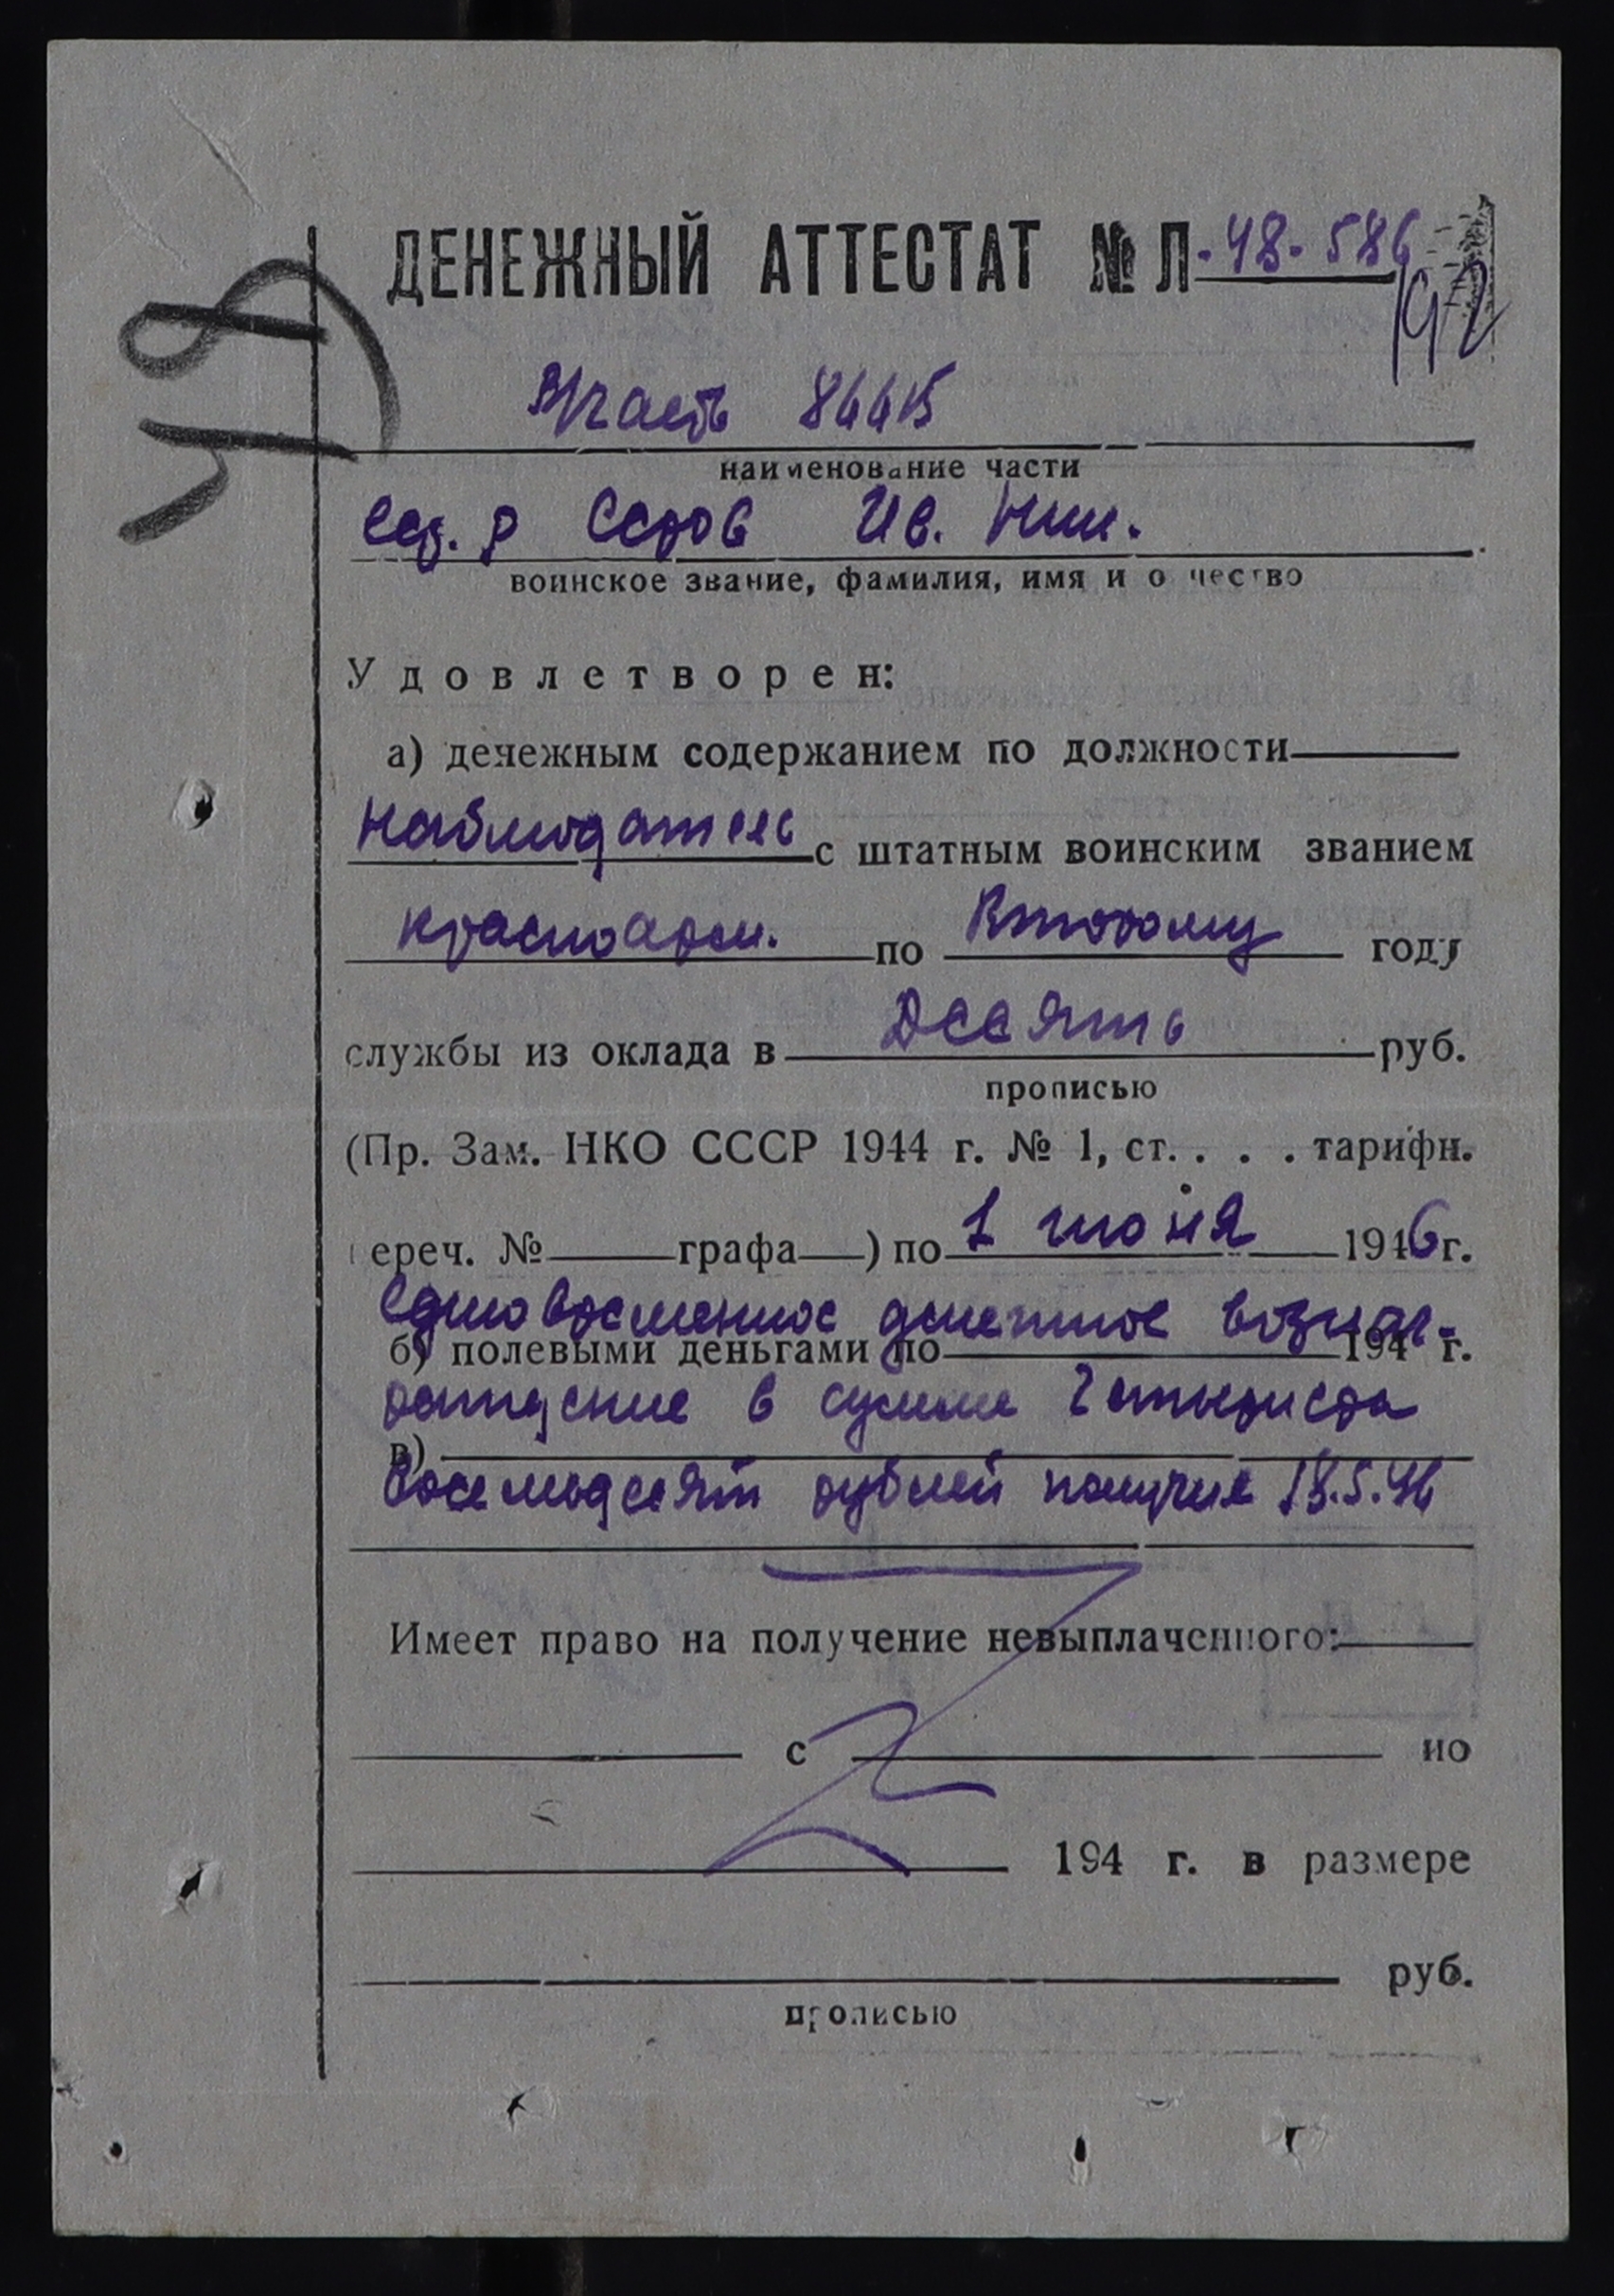 ДЕНЕЖНЫЙ АТТЕСТАТ № Л-48-586
192
48
В/часть
наименование части
Серов Ив. Ник.
воинское звание, фамилия, имя и о чество
Удовлетворен:
а) денежным содержанием по должности
Наблюдатель с штатным воинским званием
красноарм. по Второму году
службы из оклада в Десять руб.
прописью
(Пр. Зам. НКО СССР 1944 г. № 1, ст. . . . тарифн.
ереч. № графа ) по 1 июня 1946 г.
Единовременное денежное вознаг-
б) полевыми деньгами по 194 г.
раждение в сумме Четыриста
в)
Восемьдесят рублей получил 18.5.46
Имеет право на получение невыплаченного:
с по
194 г. в размере
руб.
прописью